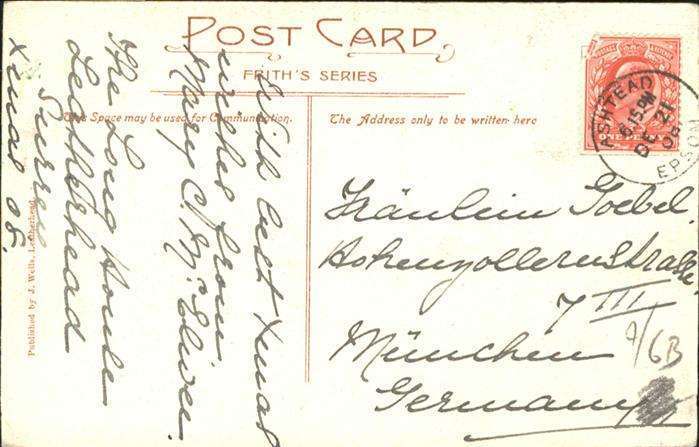 POST CARD
FRITH'S SERIES
This Space may be used for Communication.
The Address only to be written here
With best Xmas
wishes from
Mary C. Mc
The Long House
Leatherhead
Surrey
Xmas 05.
Fräulein Goebel.
Hohenzollernstrasse
7 III
Münchën
Germany
ASHTEAD
6.15 PM
DE 21
05
EPSOM
ONE PENNY
6B
Published by J. Wells, Leatherhead.